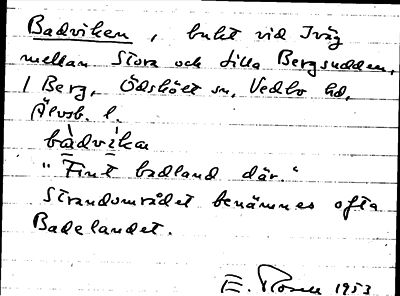 Badviken, bukt vid Iväg
mellan Stora och Lilla Bergsudden,
/ Berg, Ödskölt sn, Vedbo hd,
Älvsb. l.
bàdvi̇ka
"Fint badland där."
Strandområdet benämnes ofta
Badelandet.
E. Rosell 1953